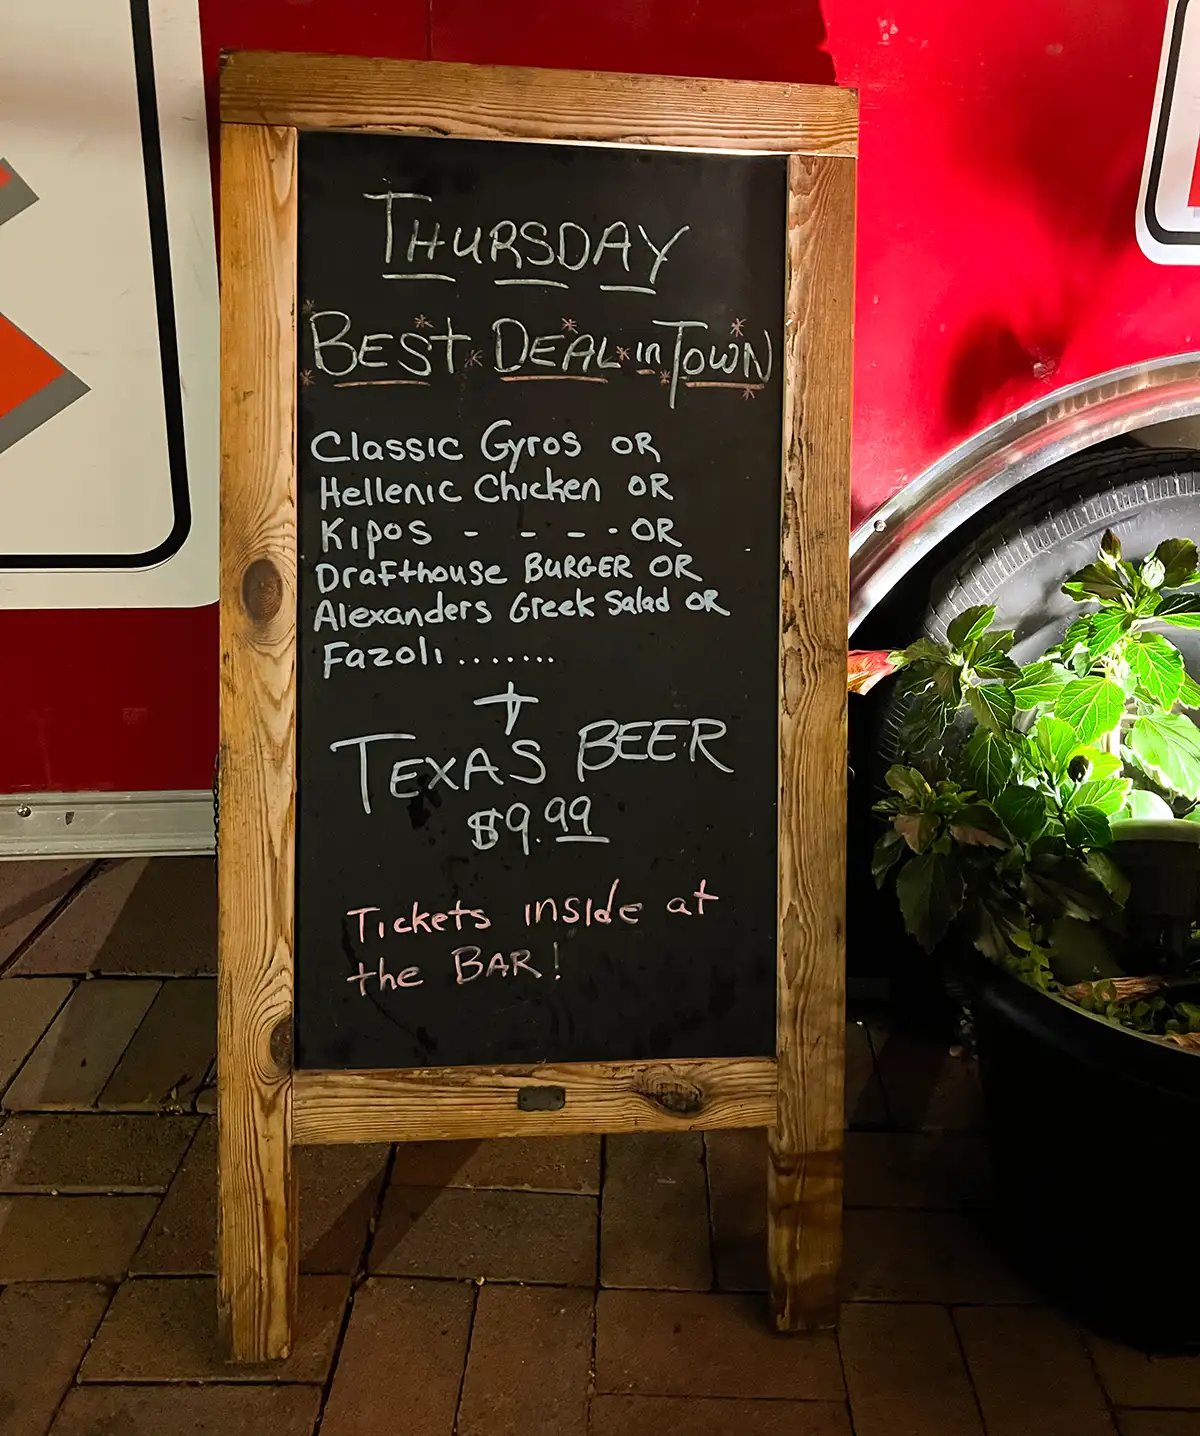 THURSDAY
BEST DEAL in TOWN
Classic Gyros OR
Hellenic Chicken OR
Kipos - - - - OR
Drafthouse BURGER OR
Alexanders Greek Salad OR
Fazoli .......
+
TEXAS BEER
$9.99
Tickets inside at
the BAR!